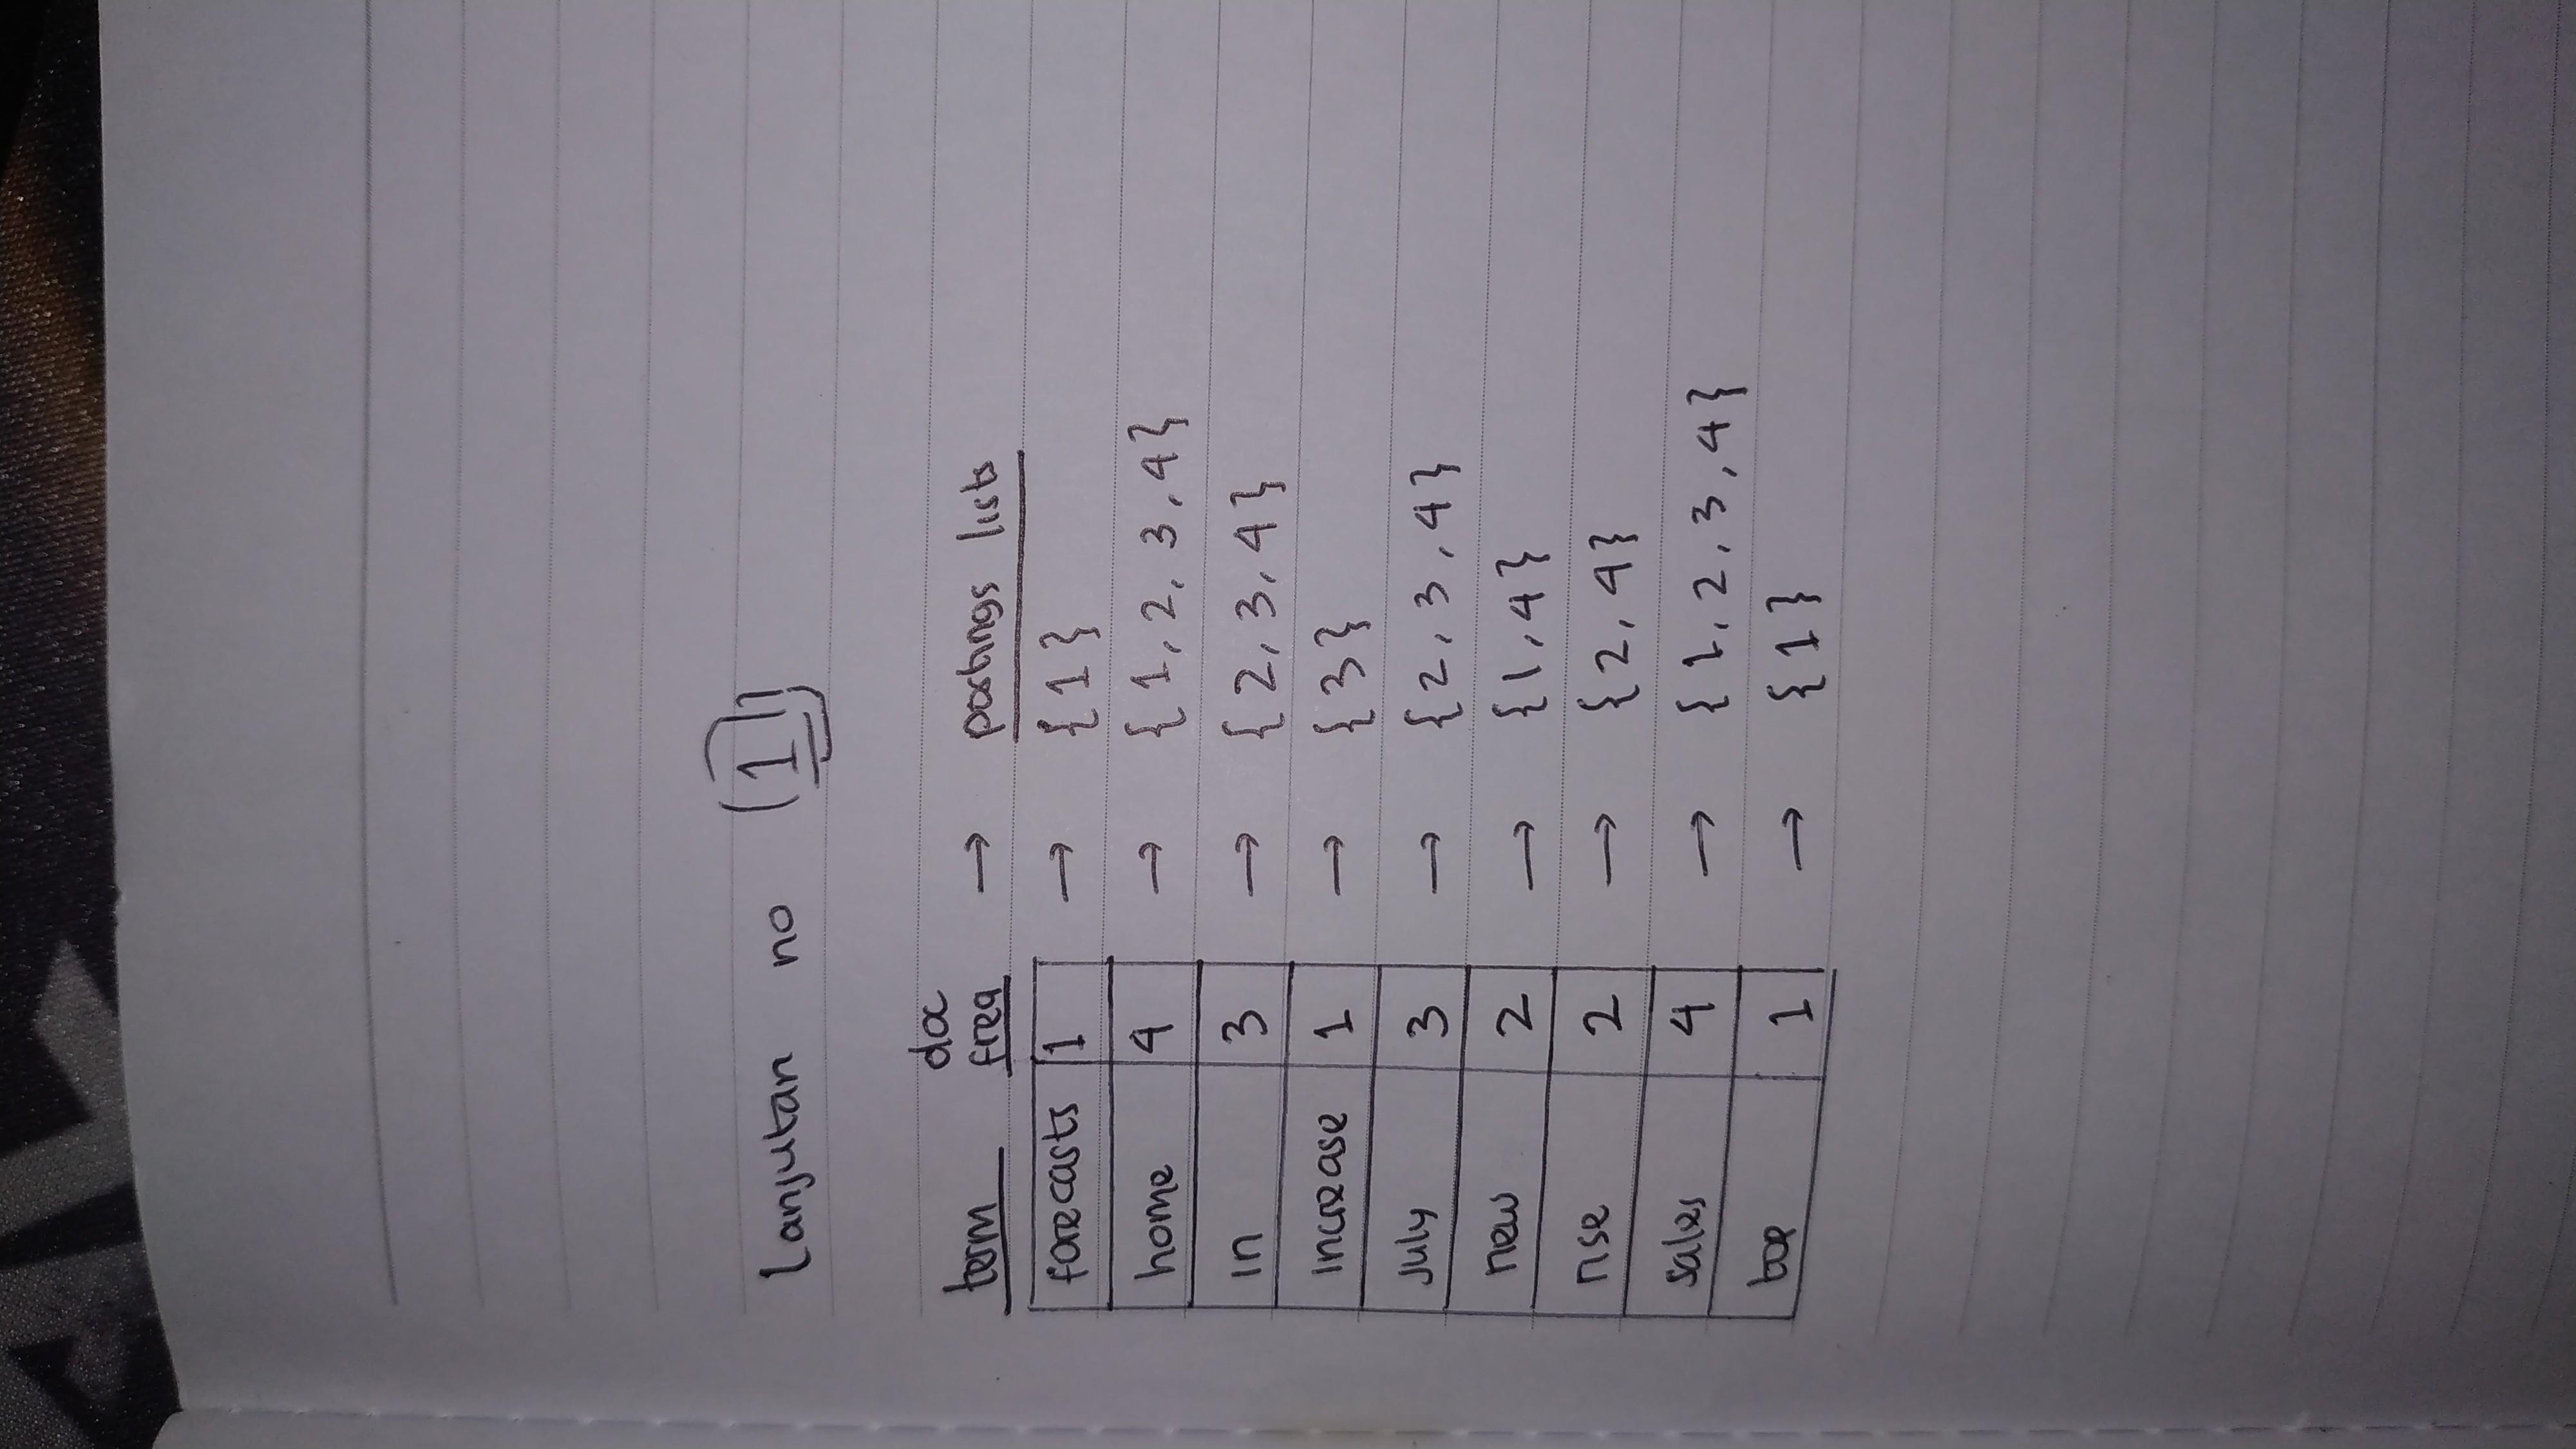 Lanjutan no (1)
doc
term freq → postings lists
forecasts 1 → {1}
home 4 → {1, 2, 3, 4}
in 3 → {2, 3, 4}
increase 1 → {3}
July 3 → {2, 3, 4}
new 2 → {1, 4}
rise 2 → {2, 4}
sales 4 → {1, 2, 3, 4}
top 1 → {1}